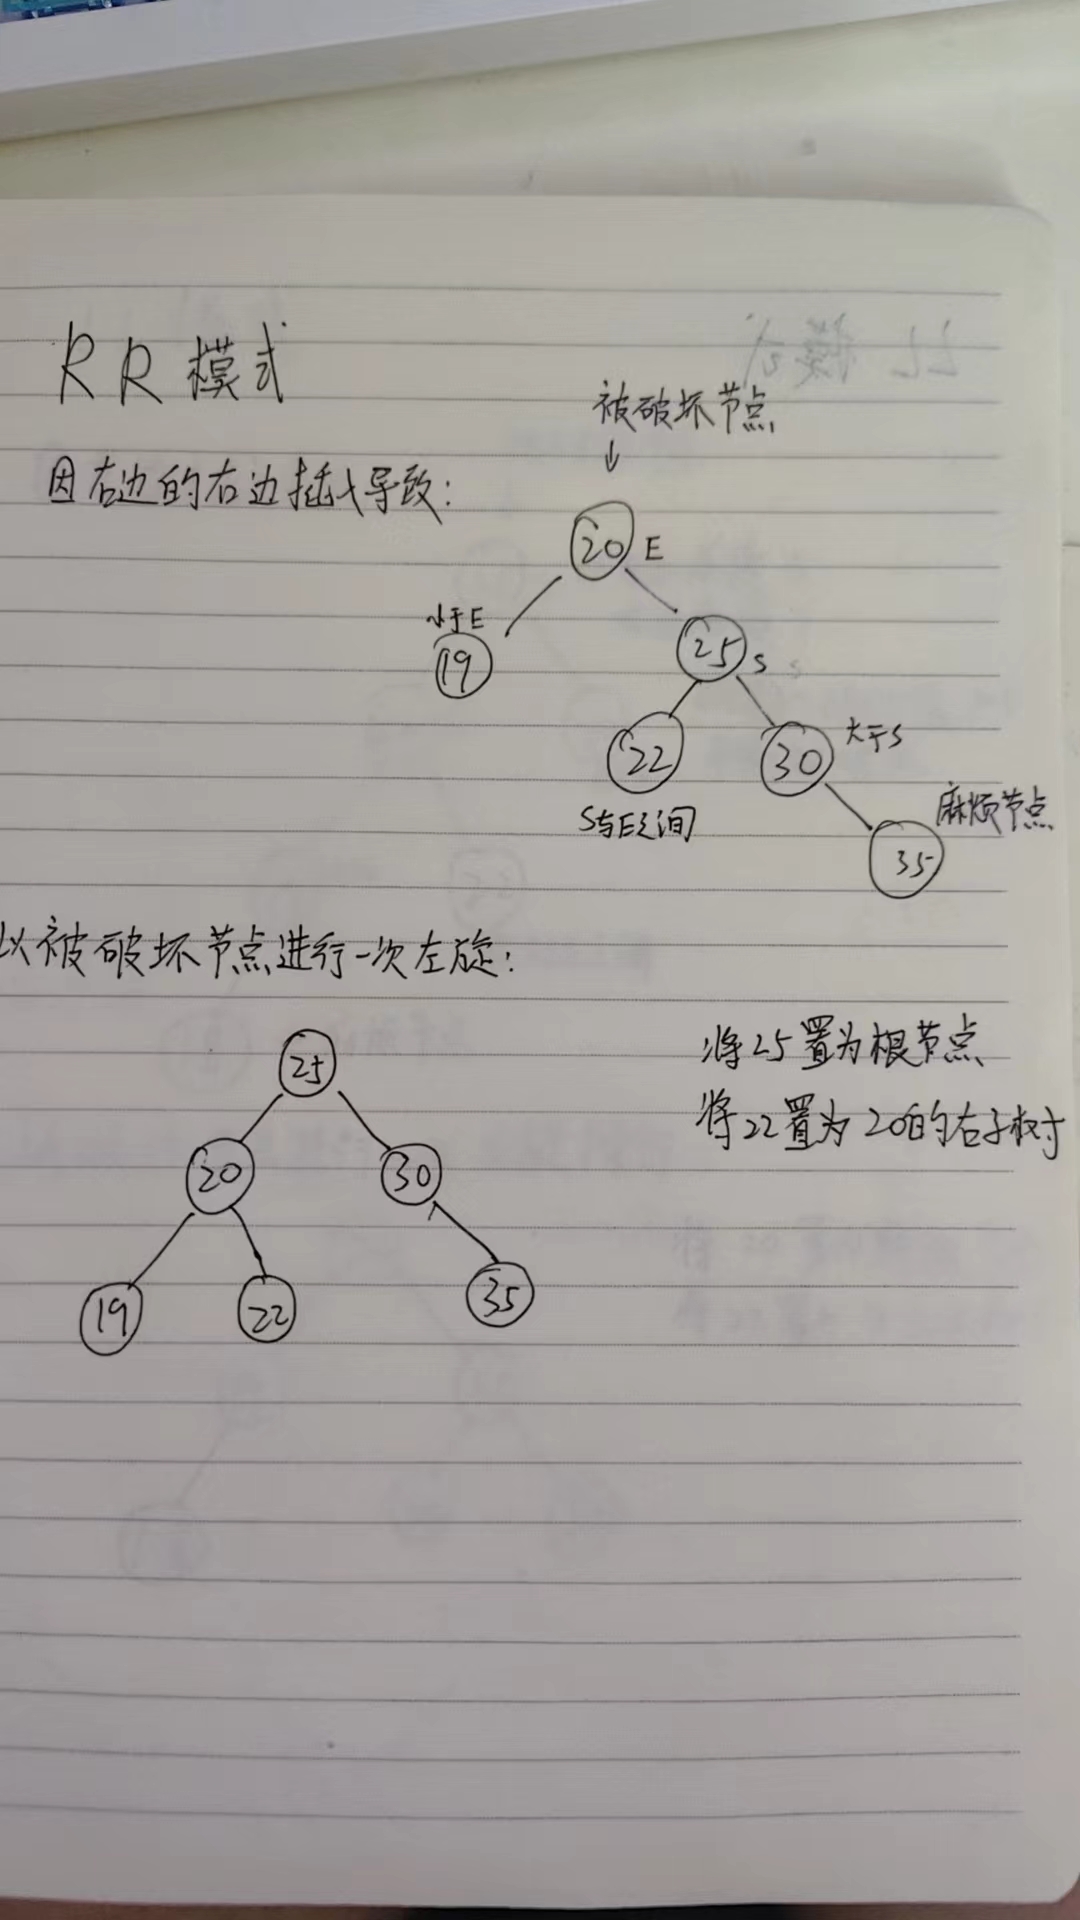 RR模式
被破坏节点
因右边的右边插入导致：
20 E
小于E
19
25 S
22
30
大于S
S与E之间
麻烦节点
35
以被破坏节点进行一次左旋：
25
将25置为根节点
将22置为20的右子树
20
30
19
22
35